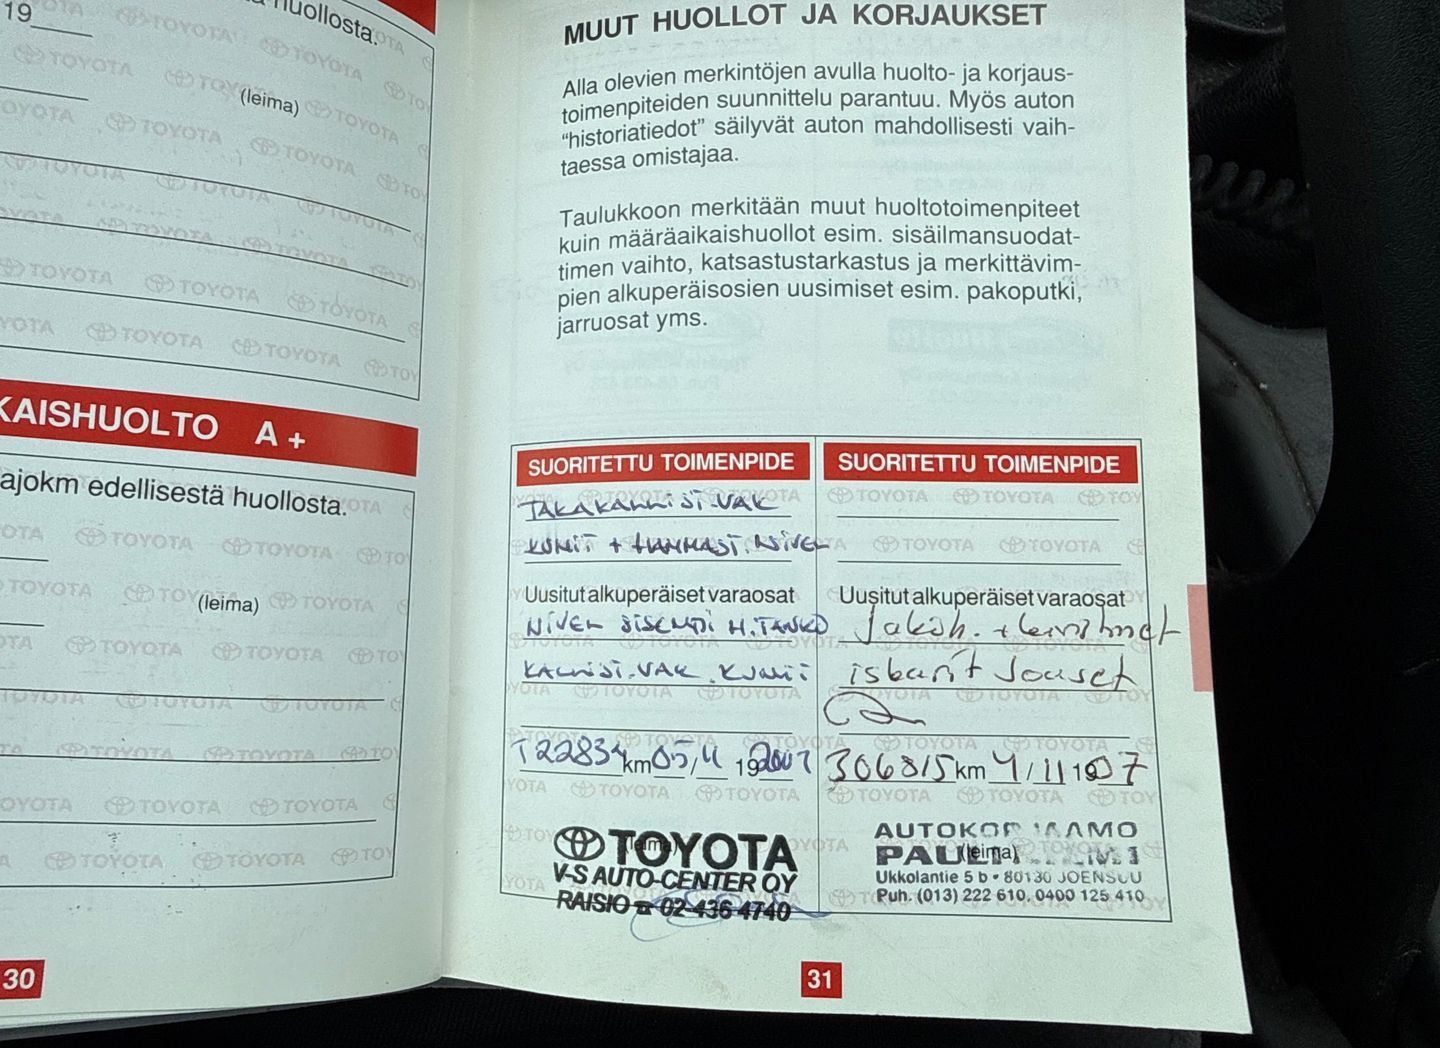 19
huollosta.
(leima)
KAISHUOLTO A +
ajokm edellisestä huollosta.
(leima)
30
MUUT HUOLLOT JA KORJAUKSET
Alla olevien merkintöjen avulla huolto- ja korjaus-
toimenpiteiden suunnittelu parantuu. Myös auton
“historiatiedot” säilyvät auton mahdollisesti vaih-
taessa omistajaa.
Taulukkoon merkitään muut huoltotoimenpiteet
kuin määräaikaishuollot esim. sisäilmansuodat-
timen vaihto, katsastustarkastus ja merkittävim-
pien alkuperäisosien uusimiset esim. pakoputki,
jarruosat yms.
SUORITETTU TOIMENPIDE
TAKAKALLIST.VAK
KUMIT + HAMMAST.NIVEL
Uusitut alkuperäiset varaosat
NIVEL SISEMPI H.TANKO
KALLIST.VAK.KUMIT
T22834 km 05/11 19 2001
(leima)
TOYOTA
V-S AUTO-CENTER OY
RAISIO ☎ 02-436 4740
SUORITETTU TOIMENPIDE
Uusitut alkuperäiset varaosat
Jakoh. + kiristimet
306815 km 9/11 19 07
AUTOKORJAAMO
PAULI
(leima)
Ukkolantie 5 b • 80130 JOENSUU
Puh. (013) 222 610, 0400 125 410
31